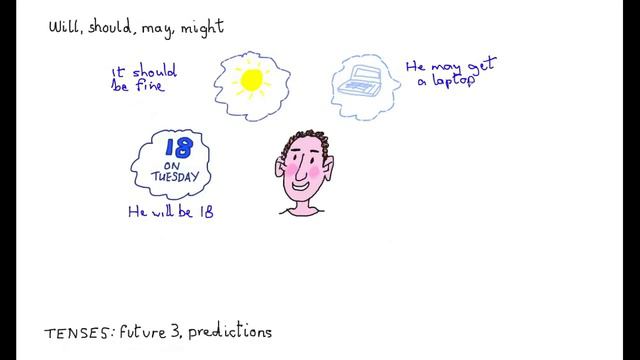 Will, should, may, might
It should
be fine
He may get
a laptop
18
ON
TUESDAY
He will be 18
TENSES: future 3, predictions